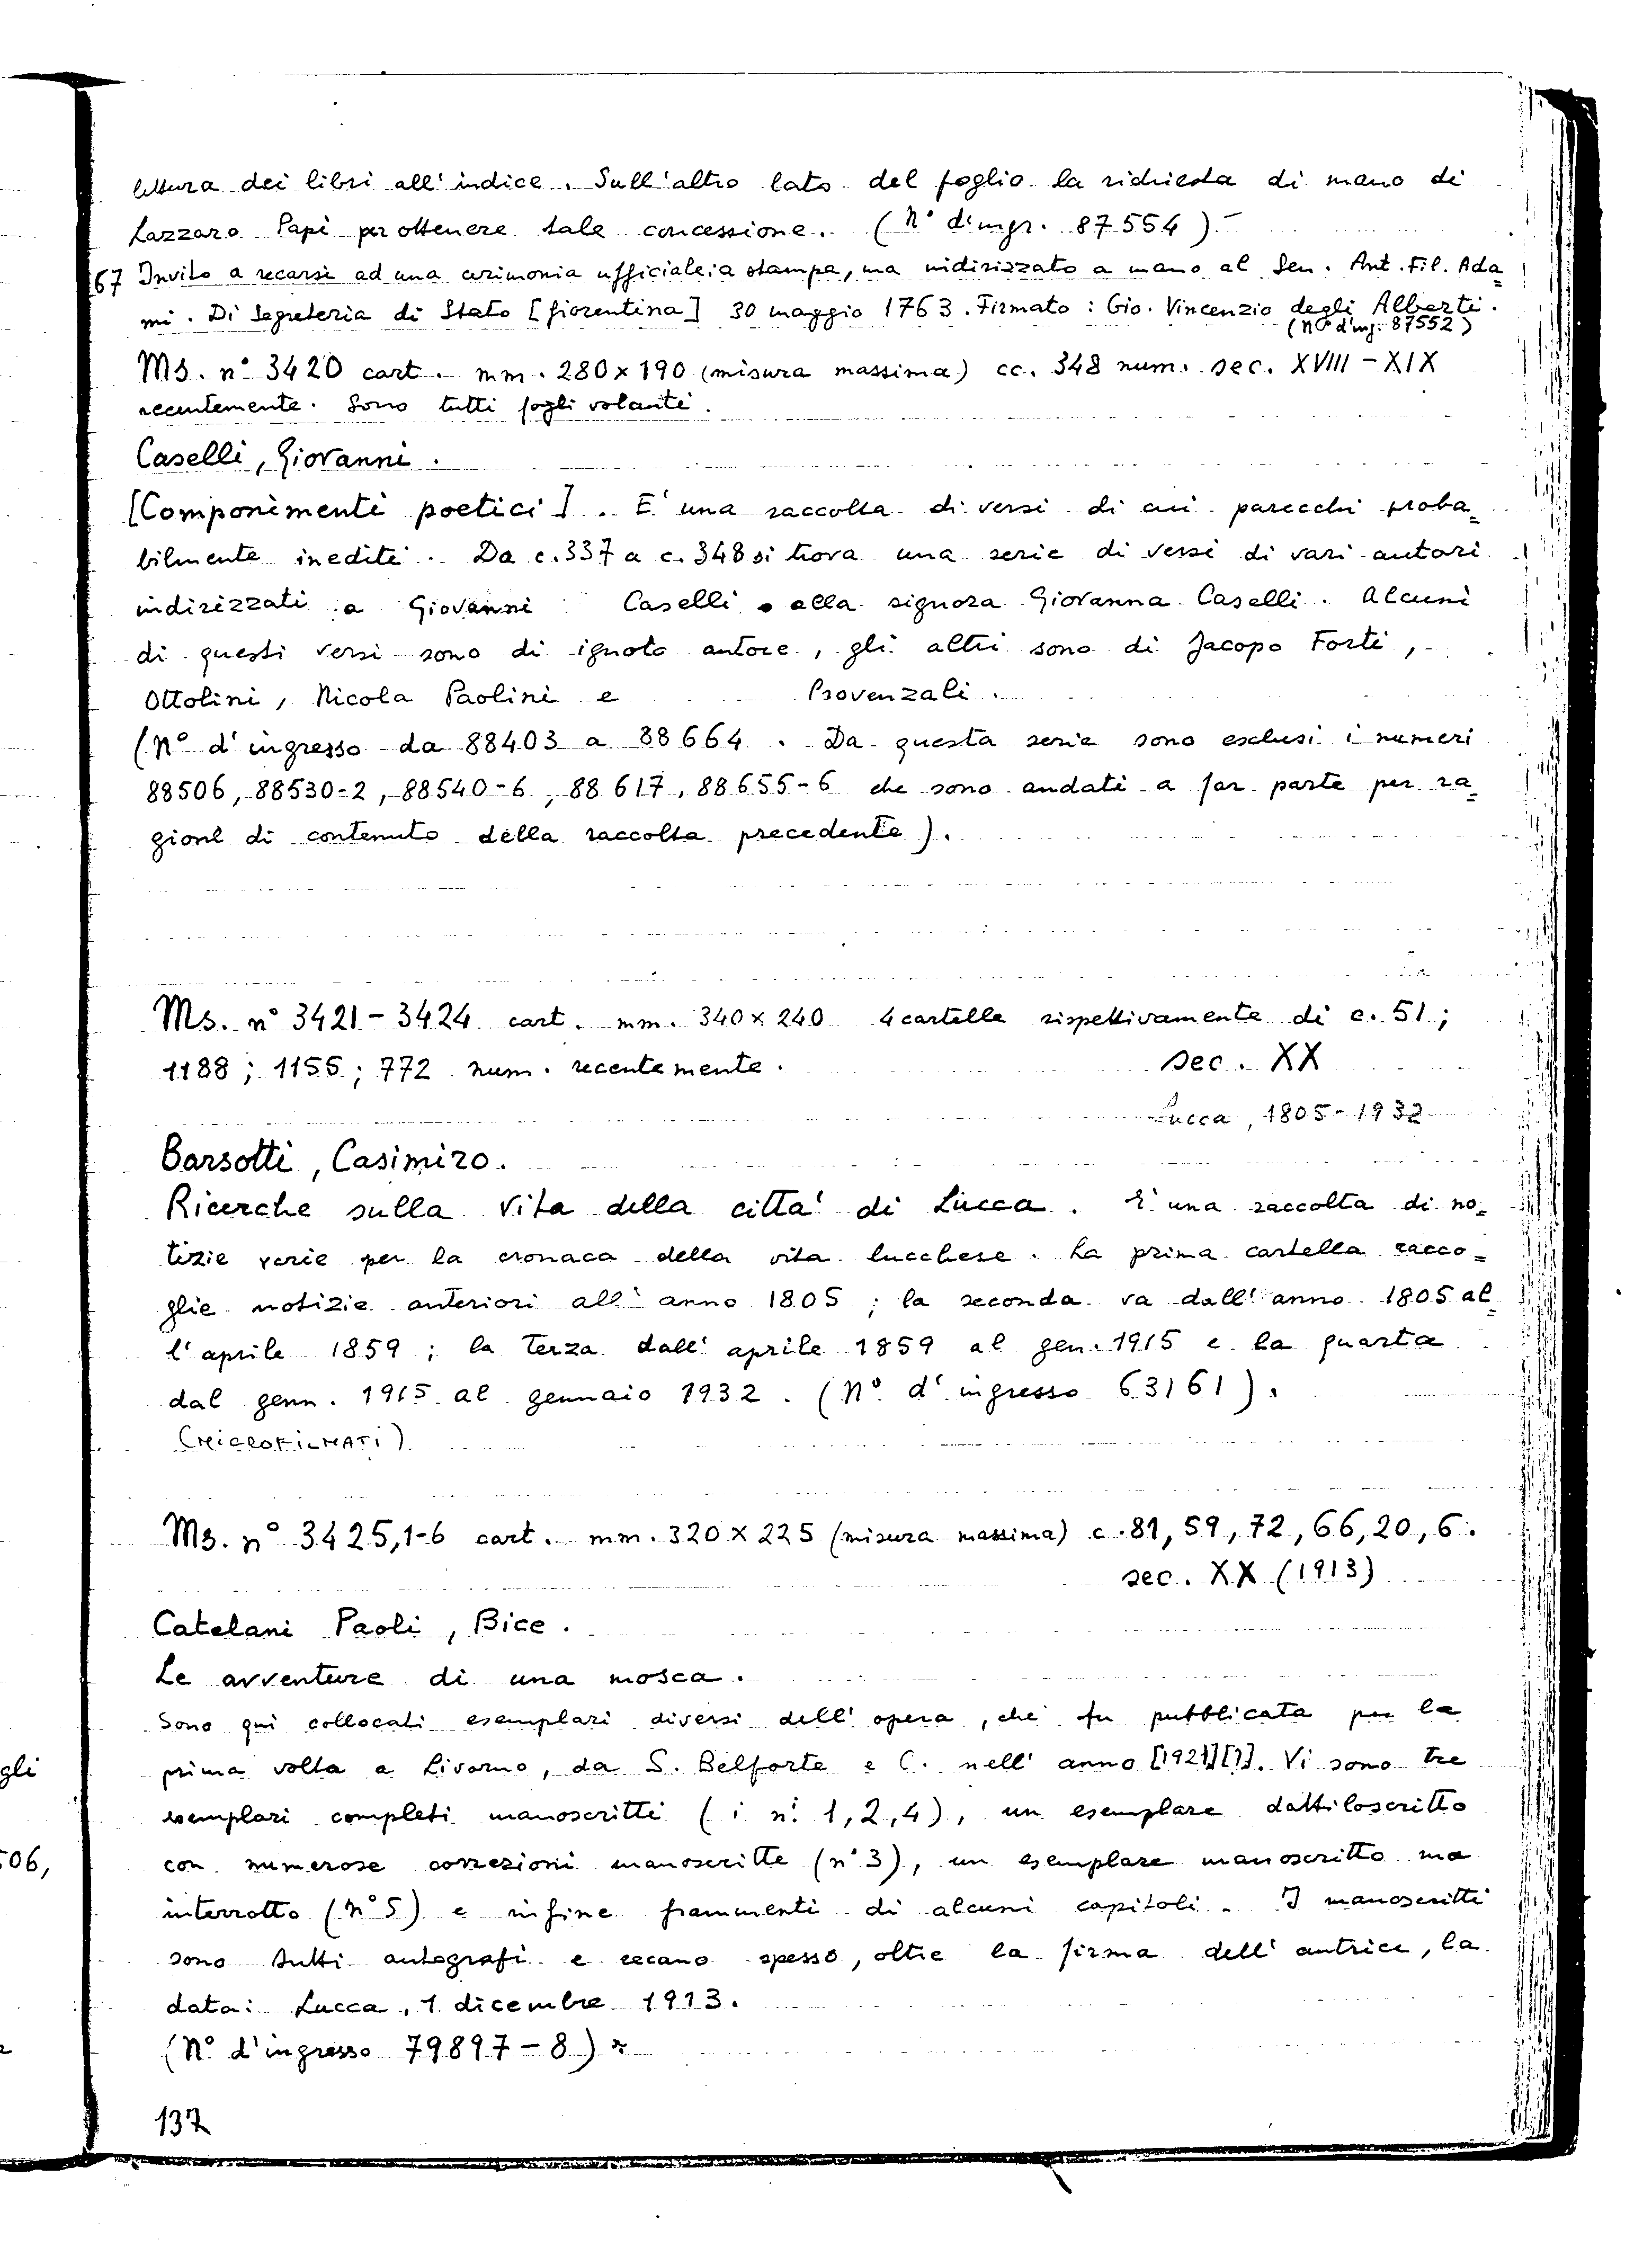 lettura dei libri all'indice. Sull'altro lato del foglio la richiesta di mano di
Lazzaro Papi per ottenere tale concessione. (N° d'ingr. 87554)
67 Invito a recarsi ad una cerimonia ufficiale; a stampa, ma indirizzato a mano al Sen. Ant. Fil. Ada=
mi. Di Segreteria di Stato [fiorentina] 30 maggio 1763. Firmato: Gio. Vincenzio degli Alberti.
(N° d'ing. 87552)
Ms. n° 3420 cart. mm. 280x190 (misura massima) cc. 348 num. sec. XVIII-XIX
recentemente. Sono tutti fogli volanti.
Caselli, Giovanni.
[Componimenti poetici]. E' una raccolta di versi di cui parecchi proba=
bilmente inediti. Da c. 337 a c. 348 si trova una serie di versi di vari autori
indirizzati a Giovanni Caselli o alla signora Giovanna Caselli. Alcuni
di questi versi sono di ignoto autore, gli altri sono di Jacopo Forti,
Ottolini, Nicola Paolini e Provenzali.
(N° d'ingresso da 88403 a 88664. Da questa serie sono esclusi i numeri
88506, 88530-2, 88540-6, 88617, 88655-6 che sono andati a far parte per ra=
gioni di contenuto della raccolta precedente).
Ms. n° 3421-3424 cart. mm. 340x240 4 cartelle rispettivamente di c. 51;
1188; 1155; 772 num. recentemente. sec. XX
Lucca, 1805-1932
Barsotti, Casimiro.
Ricerche sulla vita della citta' di Lucca. E' una raccolta di no=
tizie varie per la cronaca della vita lucchese. La prima cartella racco=
glie notizie anteriori all'anno 1805; la seconda va dall'anno 1805 al=
l'aprile 1859; la terza dall'aprile 1859 al gen. 1915 e la quarta
dal genn. 1915 al gennaio 1932. (N° d'ingresso 63161).
(MICROFILMATI)
Ms. n° 3425,1-6 cart. mm. 320x225 (misura massima) c. 81, 59, 72, 66, 20, 6.
sec. XX (1913)
Catelani Paoli, Bice.
Le avventure di una mosca.
Sono qui collocati esemplari diversi dell'opera, che fu pubblicata per la
prima volta a Livorno, da S. Belforte e C. nell'anno [1921][?]. Vi sono tre
esemplari completi manoscritti (i n! 1, 2, 4), un esemplare dattiloscritto
con numerose correzioni manoscritte (n° 3), un esemplare manoscritto ma
interrotto (n° 5) e infine frammenti di alcuni capitoli. I manoscritti
sono tutti autografi e recano spesso, oltre la firma dell'autrice, la
data: Lucca, 1 dicembre 1913.
(N° d'ingresso 79897-8)
137
gli
506,